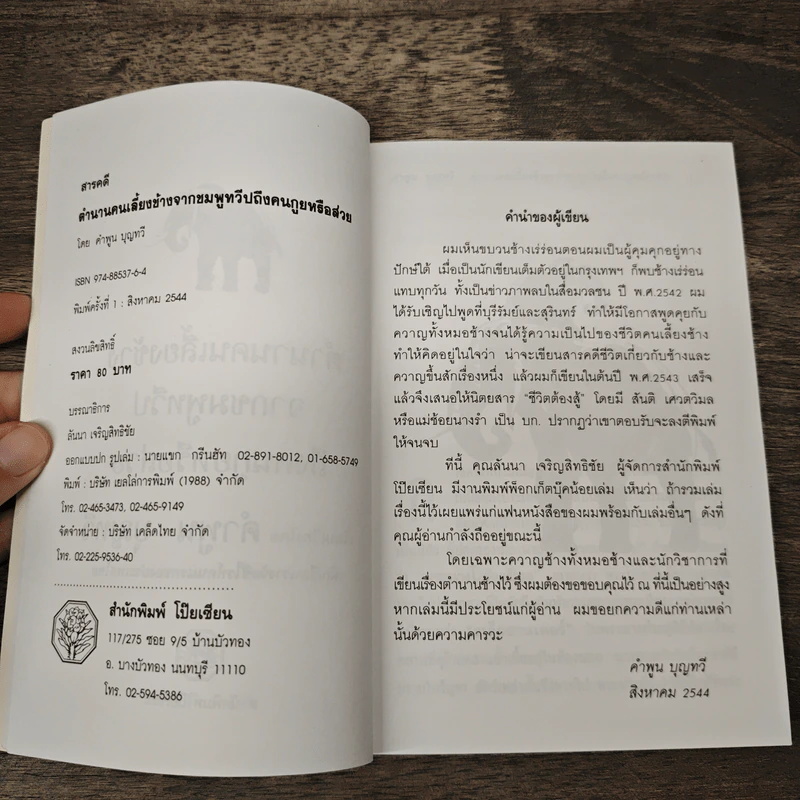 สารคดี
ตำนานคนเลี้ยงช้างจากชมพูทวีปถึงคนกูยหรือส่วย
โดย คำพูน บุญทวี
ISBN 974-88537-6-4
พิมพ์ครั้งที่ 1 : สิงหาคม 2544
สงวนลิขสิทธิ์
ราคา 80 บาท
บรรณาธิการ
ลันนา เจริญสิทธิชัย
ออกแบบปก รูปเล่ม : นายแขก กรีนฮัท 02-891-8012, 01-658-5749
พิมพ์ : บริษัท เยลโล่การพิมพ์ (1988) จำกัด
โทร. 02-465-3473, 02-465-9149
จัดจำหน่าย : บริษัท เคล็ดไทย จำกัด
โทร. 02-225-9536-40
สำนักพิมพ์ โป๊ยเซียน
117/275 ซอย 9/5 บ้านบัวทอง
อ. บางบัวทอง นนทบุรี 11110
โทร. 02-594-5386
คำนำของผู้เขียน
ผมเห็นขบวนช้างเร่ร่อนตอนผมเป็นผู้คุมคุกอยู่ทาง
ปักษ์ใต้ เมื่อเป็นนักเขียนเต็มตัวอยู่ในกรุงเทพฯ ก็พบช้างเร่ร่อน
แทบทุกวัน ทั้งเป็นข่าวภาพลบในสื่อมวลชน ปี พ.ศ.2542 ผม
ได้รับเชิญไปพูดที่บุรีรัมย์และสุรินทร์ ทำให้มีโอกาสพูดคุยกับ
ควาญทั้งหมอช้างจนได้รู้ความเป็นไปของชีวิตคนเลี้ยงช้าง
ทำให้คิดอยู่ในใจว่า น่าจะเขียนสารคดีชีวิตเกี่ยวกับช้างและ
ควาญขึ้นสักเรื่องหนึ่ง แล้วผมก็เขียนในต้นปี พ.ศ.2543 เสร็จ
แล้วจึงเสนอให้นิตยสาร "ชีวิตต้องสู้" โดยมี สันติ เศวตวิมล
หรือแม่ช้อยนางรำ เป็น บก. ปรากฏว่าเขาตอบรับจะลงตีพิมพ์
ให้จนจบ
ทีนี้ คุณลันนา เจริญสิทธิชัย ผู้จัดการสำนักพิมพ์
โป๊ยเซียน มีงานพิมพ์พ็อกเก็ตบุ๊คน้อยเล่ม เห็นว่า ถ้ารวมเล่ม
เรื่องนี้ไว้เผยแพร่แก่แฟนหนังสือของผมพร้อมกับเล่มอื่นๆ ดังที่
คุณผู้อ่านกำลังถืออยู่ขณะนี้
โดยเฉพาะควาญช้างทั้งหมอช้างและนักวิชาการที่
เขียนเรื่องตำนานช้างไว้ ซึ่งผมต้องขอขอบคุณไว้ ณ ที่นี้เป็นอย่างสูง
หากเล่มนี้มีประโยชน์แก่ผู้อ่าน ผมขอยกความดีแก่ท่านเหล่า
นั้นด้วยความคารวะ
คำพูน บุญทวี
สิงหาคม 2544